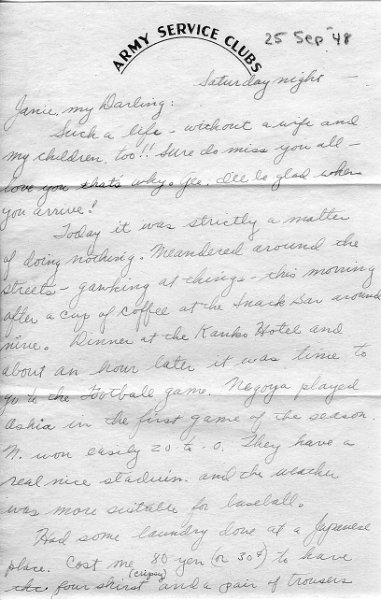 ARMY SERVICE CLUBS
25 Sep '48
Saturday night -
Janie, my Darling:
Such a life - without a wife and
my children, too!! Sure do miss you all -
love you that's why. Gee, I'll be glad when
you arrive!
Today it was strictly a matter
of doing nothing. Meandered around the
streets - gawking at things - this morning
after a cup of coffee at the Snack Bar around
nine. Dinner at the Kanko Hotel and
about an hour later it was time to
go to the football game. Nagoya played
Ashia in the first game of the season.
N. won easily 20 to 0. They have a
real nice stadium and the weather
was more suitable for baseball.
Had some laundry done at a Japanese
place. Cost me 80 yen (or 30¢) to have
the four shirts (crispy) and a pair of trousers